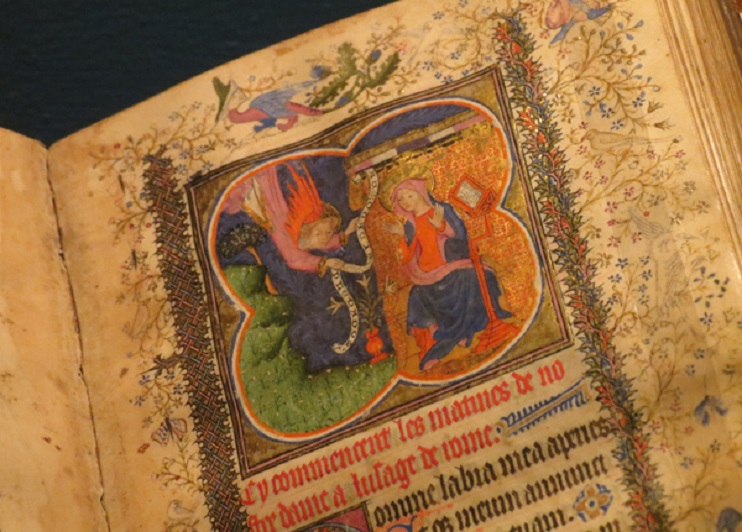 Cy commencent les matines de no
stre dame a lusage de rome.
omine labia mea aperies
os meum annunci